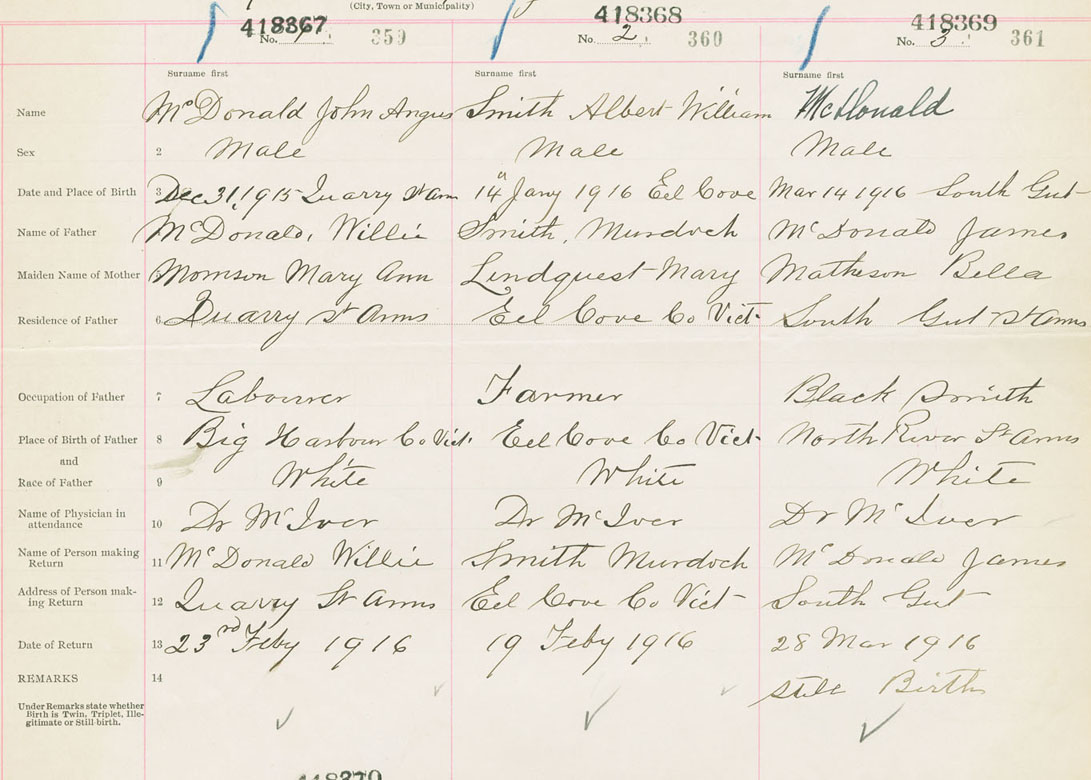 (City, Town or Municipality)
418367 418368 418369
No. 1. 359 No. 2. 360 No. 3. 361
Surname first Surname first Surname first
Name McDonald John Angus Smith Albert William McDonald
Sex 2 Male Male Male
Date and Place of Birth 3 Dec 31, 1915 Quarry St Ann 14" Jany 1916 Eel Cove Mar 14 1916 South Gut
Name of Father McDonald, Willie Smith, Murdoch McDonald James
Maiden Name of Mother 5 Morrison Mary Ann Lindquest Mary Matheson Bella
Residence of Father 6 Quarry St Anns Eel Cove Co Vict. South Gut St Anns
Occupation of Father 7 Labourer Farmer Black Smith
Place of Birth of Father 8 Big Harbour Co Vict. Eel Cove Co Vict. North River St Anns
and
Race of Father 9 White White White
Name of Physician in
attendance 10 Dr McIver Dr McIver Dr McIver
Name of Person making
Return 11 McDonald Willie Smith Murdoch McDonald James
Address of Person mak-
ing Return 12 Quarry St Anns Eel Cove Co Vict South Gut
Date of Return 13 23rd Feby 1916 19 Feby 1916 28 Mar 1916
REMARKS 14 still Birth
Under Remarks state whether
Birth is Twin, Triplet, Ille-
gitimate or Still-birth.
418370